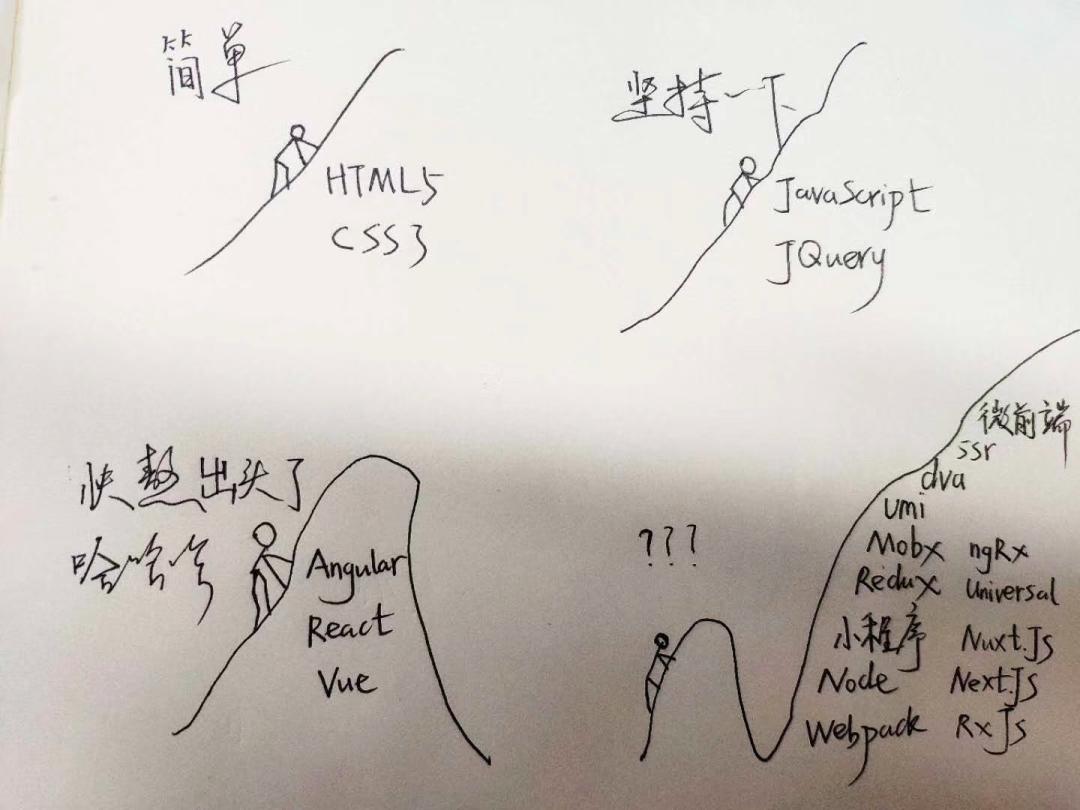 简单
HTML5
CSS3
坚持一下
JavaScript
JQuery
快熬出头了
哈哈哈
Angular
React
Vue
???
微前端
ssr
dva
umi
Mobx ngRx
Redux Universal
小程序 Nuxt.Js
Node Next.Js
Webpack RxJs